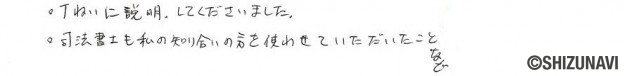 。丁ねいに説明.してくださいました.
。司法書士も私の知り合いの方を使わせていただいたこと
など
©SHIZUNAVI